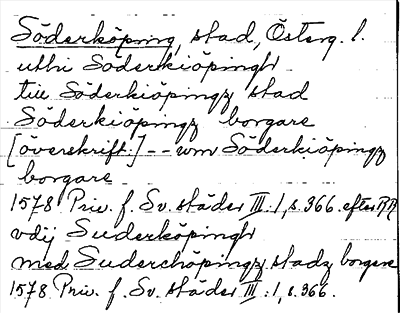 Söderköping, stad, Österg. l.
uthi Söderkiöpingh
till Söderkiöpingz stad
Söderkiöpingz borgare
[överskrift:] -- um Söderkiöpingz
borgare
1578 Priv. f. Sv. städer III: 1, s. 366. efter RR
vdij Suderköpingh
med Suderchöpingz stadz borgere
1578 Priv. f. Sv. städer III: 1, s. 366.